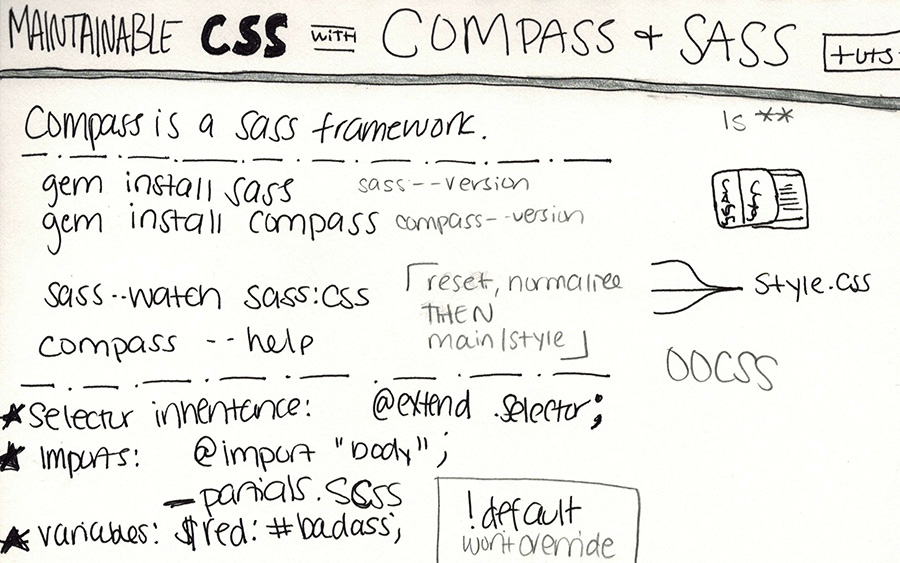 MAINTAINABLE CSS WITH COMPASS + SASS tuts+
Compass is a sass framework.
ls **
gem install sass sass--version
gem install compass compass--version
sass--watch sass:css
compass --help
reset, normalize
THEN
main/style
style.css
OOCSS
★ selector inheritance: @extend .selector;
★ Imports: @import "body";
_partials.scss
★ variables: $red: #badass;
!default
won't override